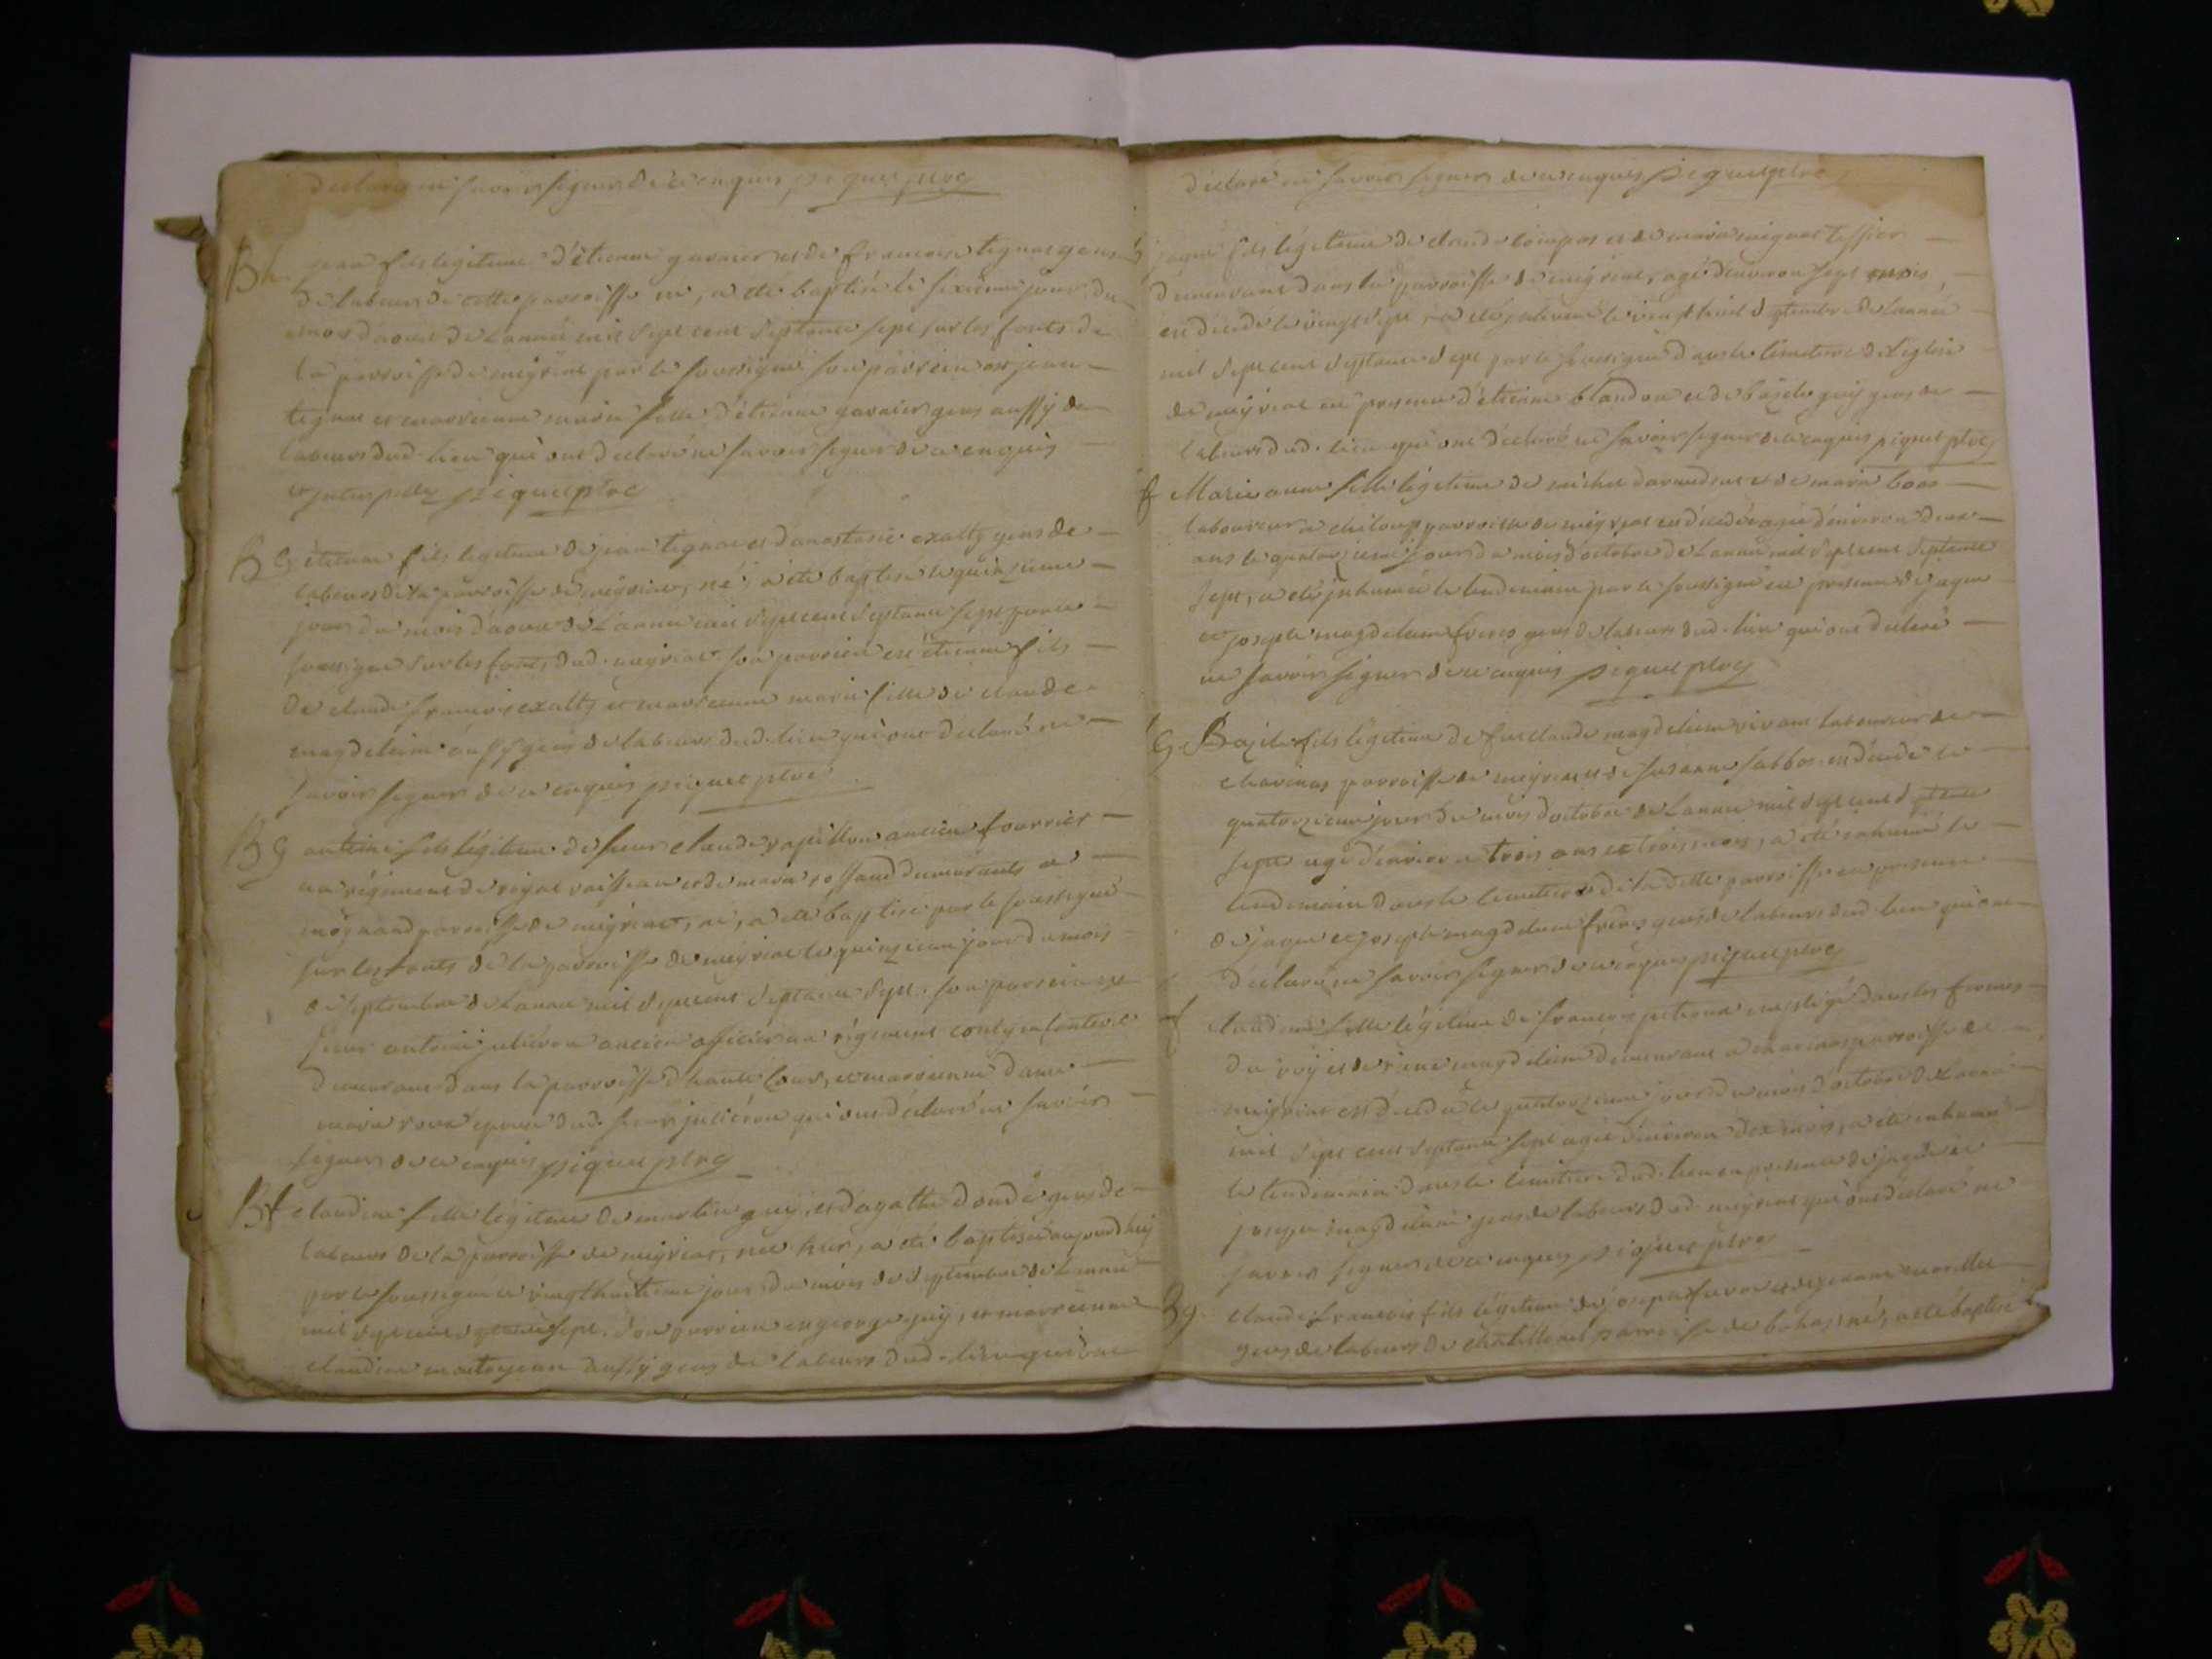 declaré ne savoir signer de ce enquis piquet ptre
B G jean fils legitime d'étienne garnier et de francoise tignat gens
de labeurs de cette parroisse né, a été baptisé le sixieme jour du
mois daoust de Lannée mil sept cent septante sept sur les fonts de
la parroisse de meyriat par le soussigné son parrein est jean
tignat et marreinne marie fille d'étienne garnier gens aussy de
labeurs dud. lieu qui ont declaré ne savoir signer de ce enquis
et interpellés piquet ptre
B G étienne fils legitime de jean tignat et danastasie exatty gens de
labeurs de la parroisse de meyriat, né, a été baptisé le quinzieme
jour du mois daoust de Lannée mil sept cent septante sept par le
soussigné sur les fonts dud. meyriat son parrein est étienne fils
de claude francois exatty et marreinne marie fille de claude
magdelaine aussy gens de labeurs dud. lieu qui ont declaré ne
savoir signer de ce enquis piquet ptre
B G antoine fils légitime de sieur claude papillon ancien fourrier
au régiment de royal vaisseau et de marie rossand demeurants a
parroisse de meyriat, né, a été baptisé par le soussigné
sur les fonts de la parroisse de meyriat le quinzieme jour du mois
de septembre de Lannée mil sept cent septante sept. son parrein est
sieur antoine juliéron ancien officier au régiment conty infanterie
demeurant dans la parroisse d'hautecour, et marreinne dame
marie épouse dud. sieur juliéron qui ont déclaré ne savoir
signer de ce enquis piquet ptre
B f claudine fille légitime de martin guy, et dagathe dondé gens de
labeurs de la parroisse de meyriat, née hier, a été baptisée aujourdhuy
par le soussigné le vingthuitieme jour du mois de septembre de Lannée
mil sept cent septante sept. son parrein est george guy, et marreinne
claudine montagean aussy gens de labeurs dud. lieu qui ont
declaré ne savoir signer de ce enquis piquet ptre
G jaque fils légitime de claude et de marie tessier
demeurant dans la parroisse de meyriat, agé d'environ sept mois,
est décédé le vingt sept, a été le vingt huit septembre de Lannée
mil sept cent septante sept par le soussigné dans le cimetiere de l'église
de meyriat en presence d'étienne blandon et de bazile guy gens de
labeurs dud. lieu qui ont déclaré ne savoir signer de ce enquis piquet ptre
f Marieanne fille légitime de michel et de marie
laboureur a chiloup parroisse de meyriat est décédée agée d'environ deux
ans le quatorzieme jour du mois d'octobre de Lannée mil sept cent septante
sept, a été inhumée le lendemain par le soussigné en presence de jaque
et joseph magdelaine freres gens de labeurs dud. lieu qui ont declaré
ne savoir signer de ce enquis piquet ptre
G Bazile fils légitime de feu claude magdelaine vivant laboureur de
chavinas parroisse de meyriat et de suzanne est décédé le
quatorzieme jour du mois d'octobre de Lannée mil sept cent septante
sept agé d'environ trois ans et trois mois, a été inhumé le
lendemain dans le cimetiere de la dette parroisse en presence
de jaque et joseph magdelaine freres gens de labeurs dud. lieu qui ont
déclaré ne savoir signer de ce enquis piquet ptre
f claudine fille légitime de francois employé dans les fermes
du roy et de magdelaine demeurant a chavinas parroisse de
meyriat est décédée le quatorzieme jour du mois d'octobre de Lannée
mil sept cent septante sept agée d'environ dix mois, a été inhumée
le lendemain dans le cimetiere dud. lieu en presence de jaque et
joseph magdelaine gens de labeurs dud. meyriat qui ont déclaré ne
savoir signer de ce enquis piquet ptre
B G claude francois fils légitime de joseph favre et de jeanne
gens de labeurs de chatillonet parroisse de bohas, né, a été baptisé